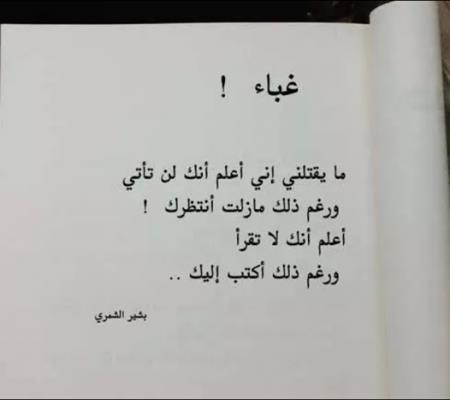 غباء !
ما يقتلني إني أعلم أنك لن تأتي
ورغم ذلك مازلت أنتظرك !
أعلم أنك لا تقرأ
ورغم ذلك أكتب إليك ..
بشير الشمري